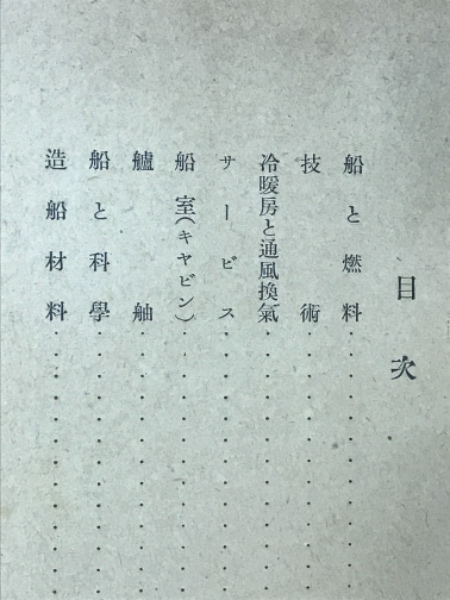 目次
船と燃料
技術
冷暖房と通風換氣
サービス
船室(キヤビン)
艫舳
船と科學
造船材料